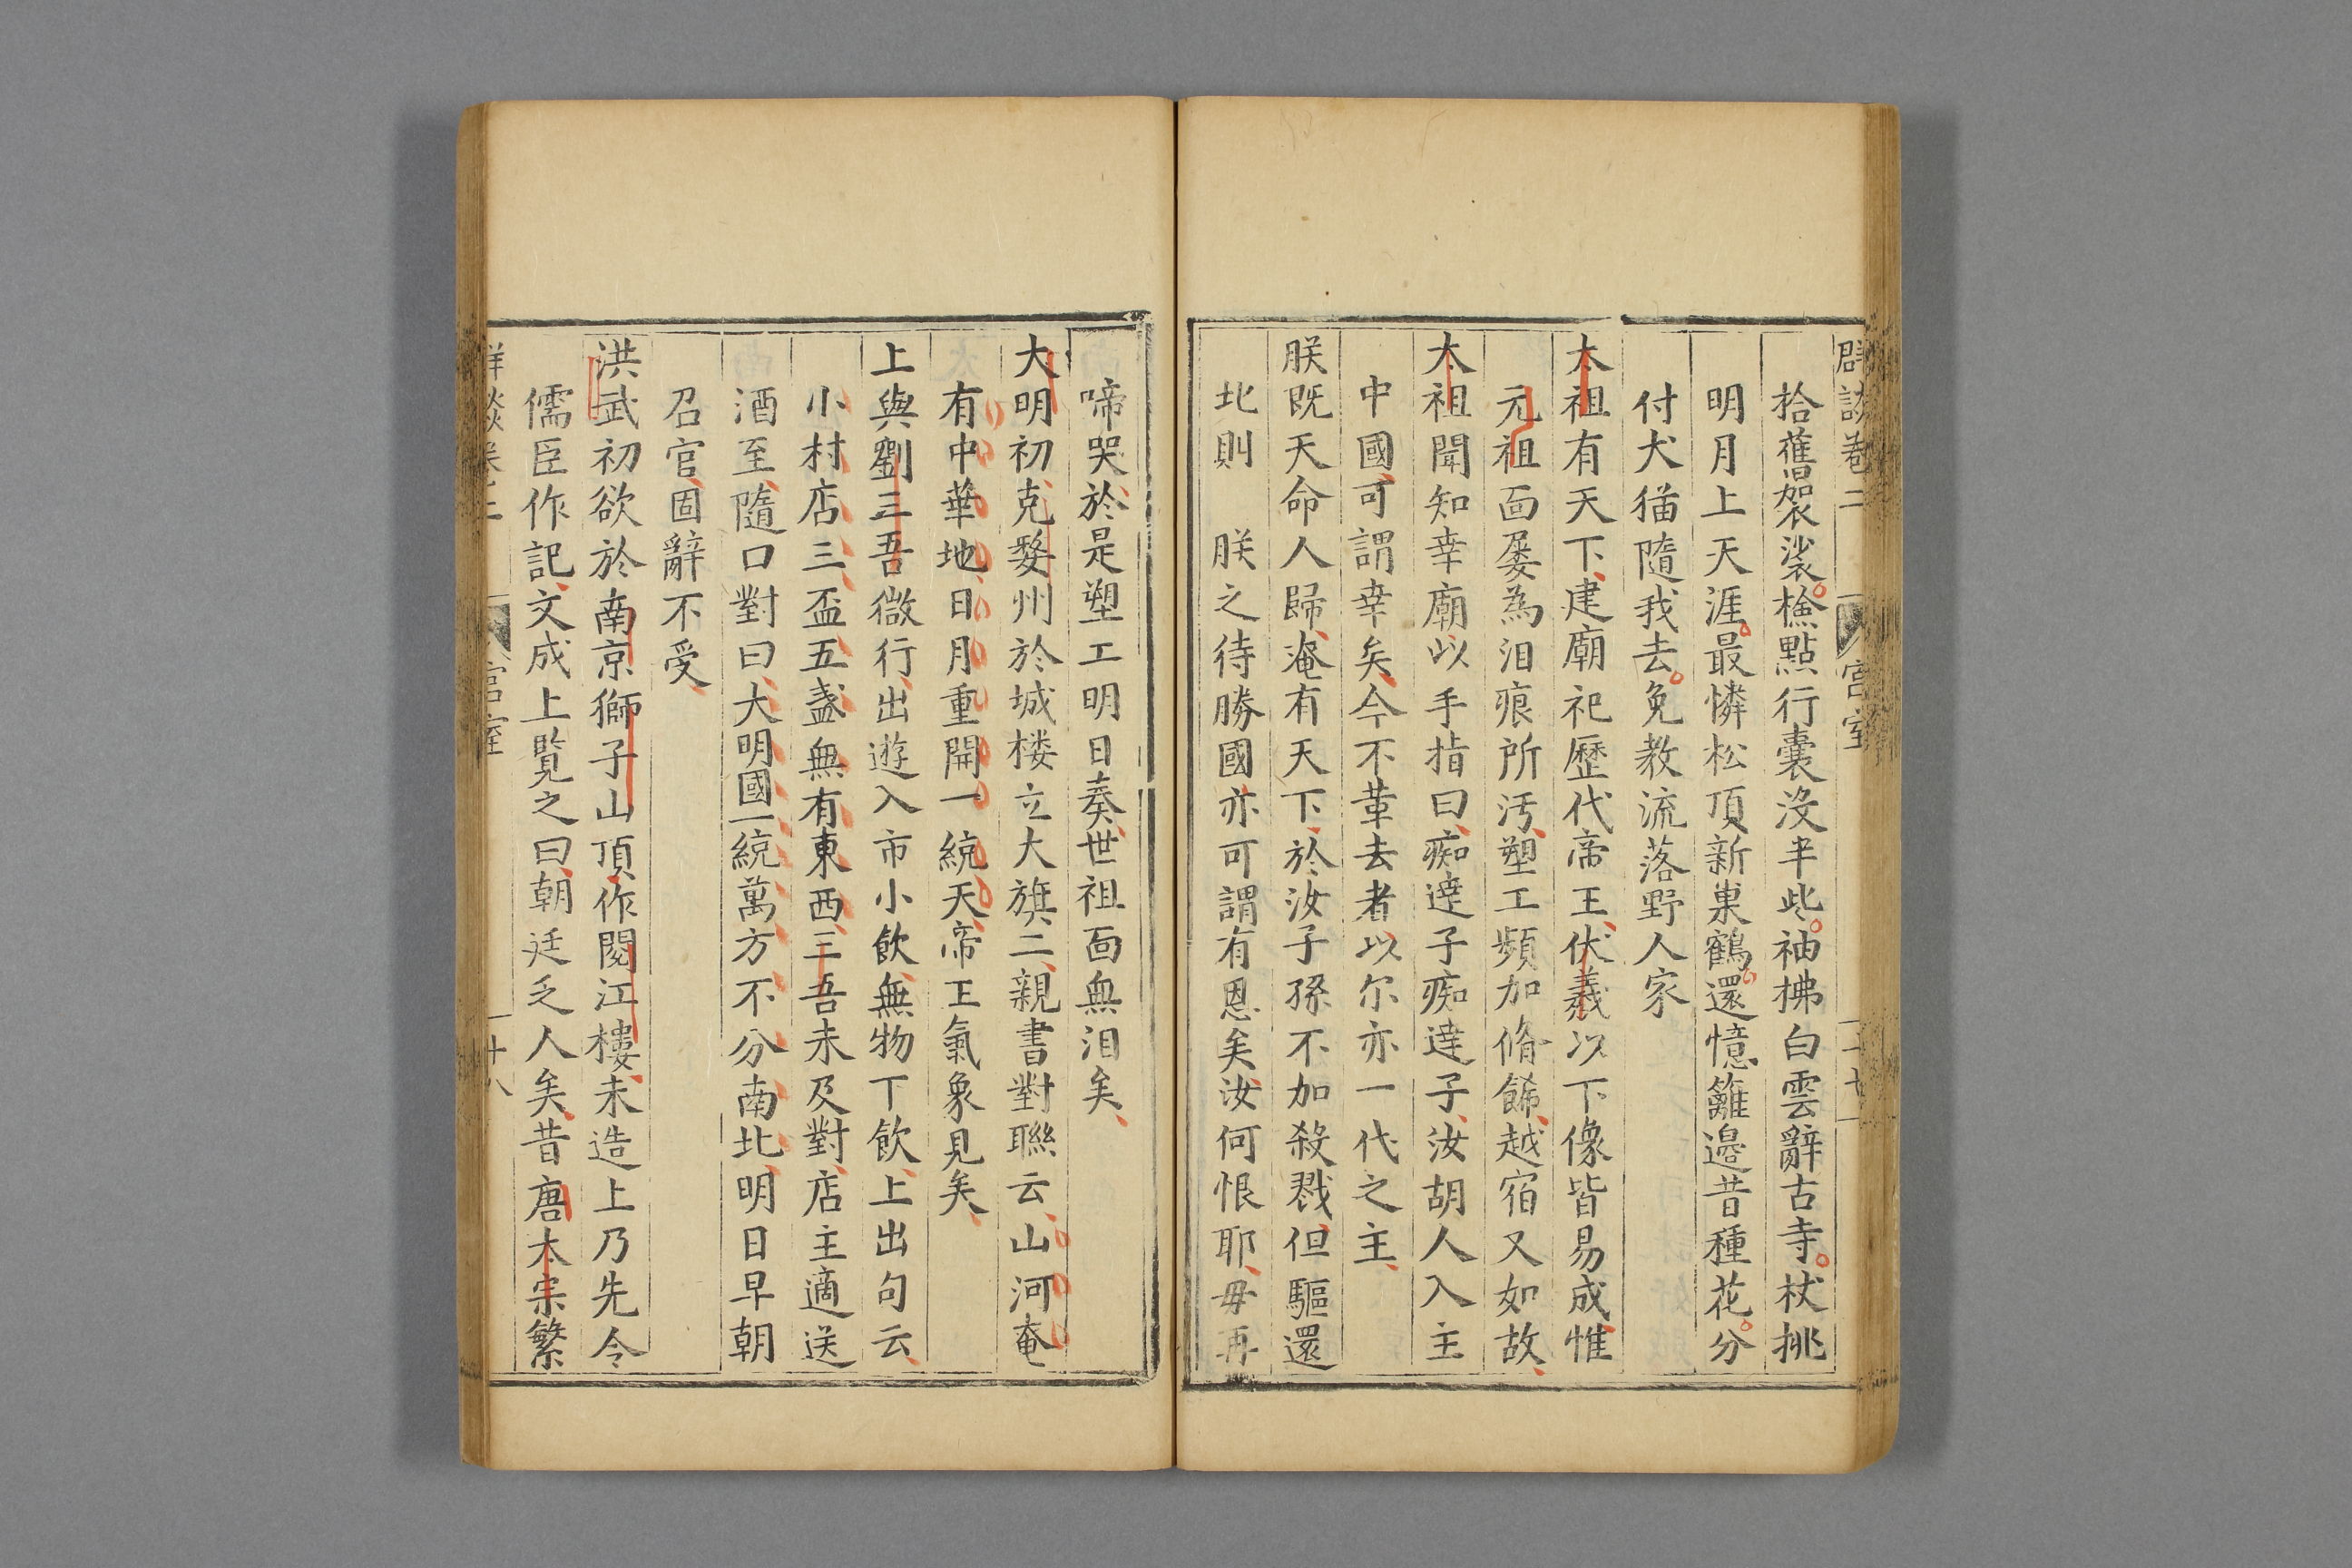 群談卷二 宫室 二十
拾舊袈裟檢點行囊没半些袖拂白雲辭古寺杖挑
明月上天涯最憐松頂新巢鶴還憶籬邉昔種花分
付犬猫隨我去免教流落野人家
太祖有天下建廟祀歷代帝王伏羲以下像皆易成惟
元祖面屡為泪痕所汚塑工頻加脩餙越宿又如故
太祖聞知幸廟以手指曰痴達子痴達子汝胡人入主
中國可謂幸矣今不革去者以尔亦一代之主
朕既天命人歸淹有天下於汝子孫不加殺戮但驅還
北則 朕之待勝國亦可謂有恩矣汝何恨耶毋再
啼哭於是塑工明日奏世祖面無泪矣
大明初克婺州於城楼立大旗二親書對聯云山河奄
有中華地日月重開一統天帝王氣象見矣
上與劉三吾微行出遊入市小飲無物下飲上出句云
小村店三盃五盞無有東西三吾未及對店主適送
酒至隨口對曰大明國一統萬方不分南北明日早朝
召官固辭不受
洪武初欲於南京獅子山頂作閱江樓未造上乃先令
儒臣作記文成上覧之曰朝廷乏人矣昔唐太宗繁
群談卷二 宫室 十八